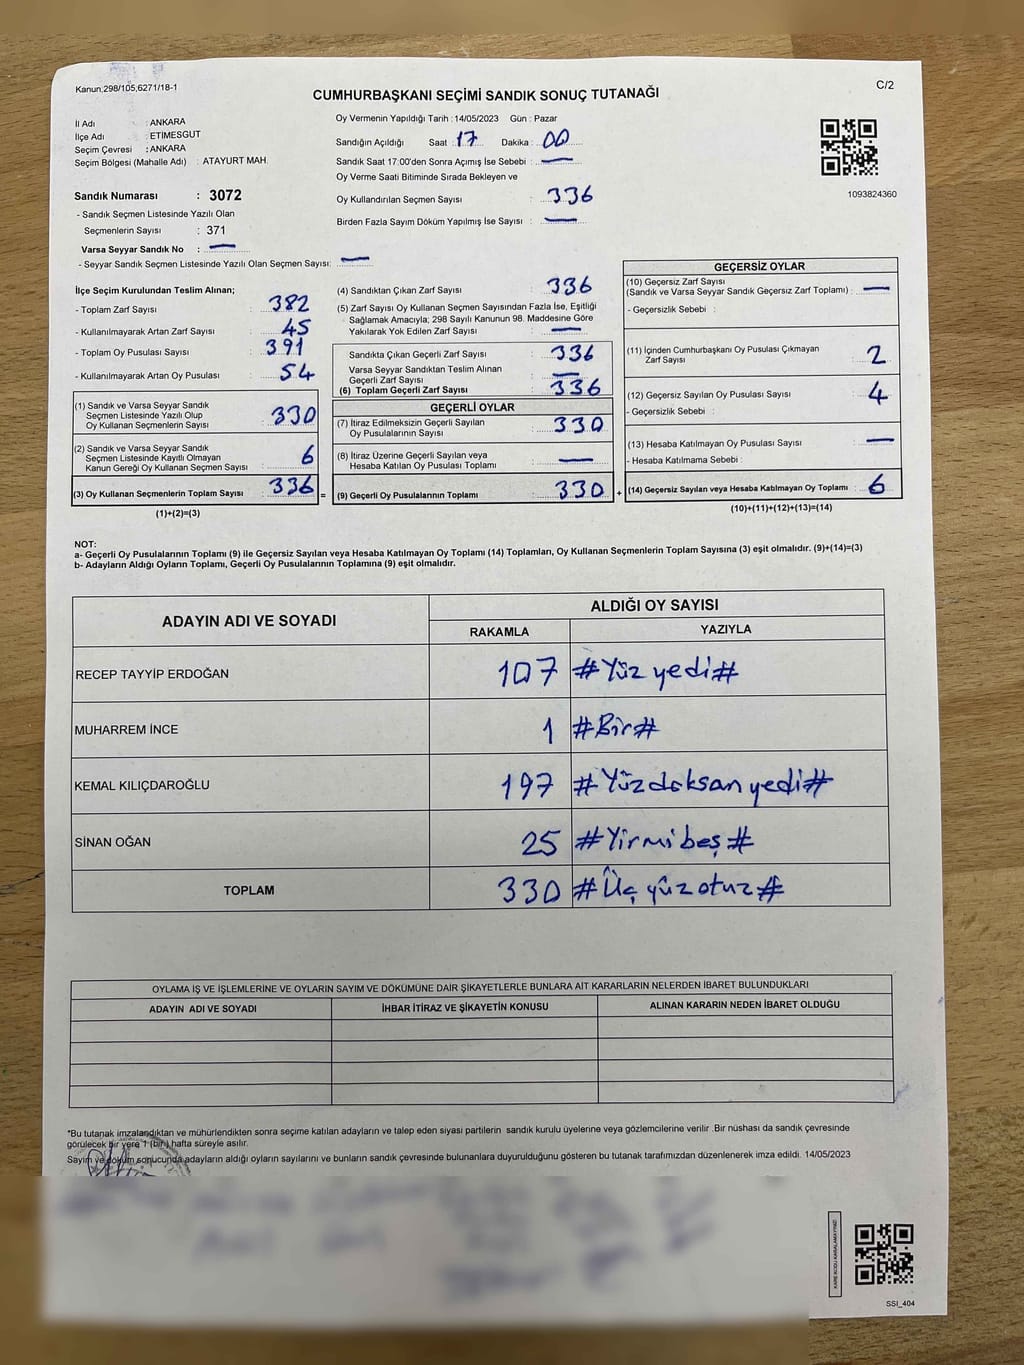 Kanun;298/105;6271/18-1
C/2
CUMHURBAŞKANI SEÇİMİ SANDIK SONUÇ TUTANAĞI
İl Adı : ANKARA
İlçe Adı : ETİMESGUT
Seçim Çevresi : ANKARA
Seçim Bölgesi (Mahalle Adı) : ATAYURT MAH.
Sandık Numarası : 3072
- Sandık Seçmen Listesinde Yazılı Olan
Seçmenlerin Sayısı : 371
Varsa Seyyar Sandık No : —
- Seyyar Sandık Seçmen Listesinde Yazılı Olan Seçmen Sayısı: —
Oy Vermenin Yapıldığı Tarih : 14/05/2023 Gün : Pazar
Sandığın Açıldığı Saat : 17 Dakika : 00
Sandık Saat 17:00'den Sonra Açımış İse Sebebi : —
Oy Verme Saati Bitiminde Sırada Bekleyen ve
Oy Kullandırılan Seçmen Sayısı : 336
Birden Fazla Sayım Döküm Yapılmış İse Sayısı : —
1093824360
İlçe Seçim Kurulundan Teslim Alınan;
- Toplam Zarf Sayısı : 382
- Kullanılmayarak Artan Zarf Sayısı : 45
- Toplam Oy Pusulası Sayısı : 391
- Kullanılmayarak Artan Oy Pusulası : 54
(1) Sandık ve Varsa Seyyar Sandık
Seçmen Listesinde Yazılı Olup
Oy Kullanan Seçmenlerin Sayısı : 330
(2) Sandık ve Varsa Seyyar Sandık
Seçmen Listesinde Kayıtlı Olmayan
Kanun Gereği Oy Kullanan Seçmen Sayısı : 6
(3) Oy Kullanan Seçmenlerin Toplam Sayısı : 336 =
(1)+(2)=(3)
(4) Sandıktan Çıkan Zarf Sayısı : 336
(5) Zarf Sayısı Oy Kullanan Seçmen Sayısından Fazla İse, Eşitliği
Sağlamak Amacıyla; 298 Sayılı Kanunun 98. Maddesine Göre
Yakılarak Yok Edilen Zarf Sayısı : —
Sandıkta Çıkan Geçerli Zarf Sayısı : 336
Varsa Seyyar Sandıktan Teslim Alınan
Geçerli Zarf Sayısı : —
(6) Toplam Geçerli Zarf Sayısı : 336
GEÇERLİ OYLAR
(7) İtiraz Edilmeksizin Geçerli Sayılan
Oy Pusulalarının Sayısı : 330
(8) İtiraz Üzerine Geçerli Sayılan veya
Hesaba Katılan Oy Pusulası Toplamı : —
(9) Geçerli Oy Pusulalarının Toplamı : 330 +
GEÇERSİZ OYLAR
(10) Geçersiz Zarf Sayısı
(Sandık ve Varsa Seyyar Sandık Geçersiz Zarf Toplamı) : —
- Geçersizlik Sebebi :
(11) İçinden Cumhurbaşkanı Oy Pusulası Çıkmayan
Zarf Sayısı : 2
(12) Geçersiz Sayılan Oy Pusulası Sayısı : 4
- Geçersizlik Sebebi :
(13) Hesaba Katılmayan Oy Pusulası Sayısı : —
- Hesaba Katılmama Sebebi :
(14) Geçersiz Sayılan veya Hesaba Katılmayan Oy Toplamı : 6
(10)+(11)+(12)+(13)=(14)
NOT:
a- Geçerli Oy Pusulalarının Toplamı (9) ile Geçersiz Sayılan veya Hesaba Katılmayan Oy Toplamı (14) Toplamları, Oy Kullanan Seçmenlerin Toplam Sayısına (3) eşit olmalıdır. (9)+(14)=(3)
b- Adayların Aldığı Oyların Toplamı, Geçerli Oy Pusulalarının Toplamına (9) eşit olmalıdır.
ADAYIN ADI VE SOYADI
ALDIĞI OY SAYISI
RAKAMLA YAZIYLA
RECEP TAYYİP ERDOĞAN 107 #Yüz yedi#
MUHARREM İNCE 1 #Bir#
KEMAL KILIÇDAROĞLU 197 #Yüzdoksan yedi#
SİNAN OĞAN 25 #Yirmi beş#
TOPLAM 330 #Üç yüz otuz#
OYLAMA İŞ VE İŞLEMLERİNE VE OYLARIN SAYIM VE DÖKÜMÜNE DAİR ŞİKAYETLERLE BUNLARA AİT KARARLARIN NELERDEN İBARET BULUNDUKLARI
ADAYIN ADI VE SOYADI İHBAR İTİRAZ VE ŞİKAYETİN KONUSU ALINAN KARARIN NEDEN İBARET OLDUĞU
*Bu tutanak imzalandıktan ve mühürlendikten sonra seçime katılan adayların ve talep eden siyasi partilerin sandık kurulu üyelerine veya gözlemcilerine verilir .Bir nüshası da sandık çevresinde
görülecek bir yere 1 (bir) hafta süreyle asılır.
Sayım ve döküm sonucunda adayların aldığı oyların sayılarını ve bunların sandık çevresinde bulunanlara duyurulduğunu gösteren bu tutanak tarafımızdan düzenlenerek imza edildi. 14/05/2023
KARE KODU KARALAMAYINIZ!
SSI_404